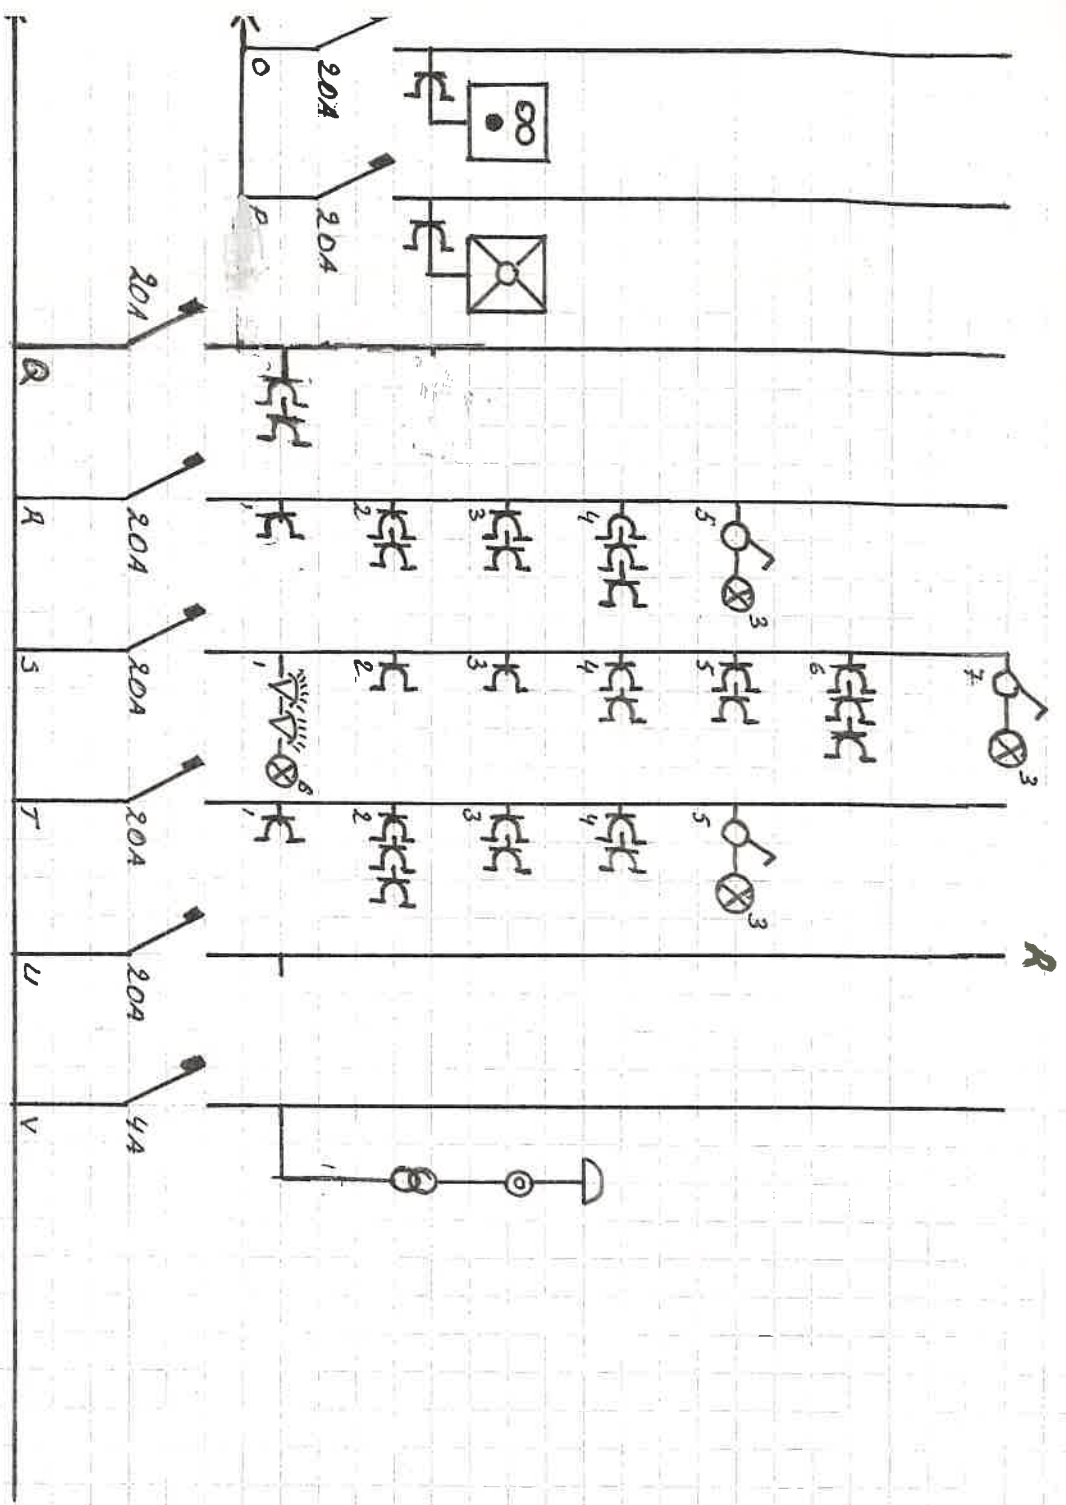 O
20A
P
20A
20A
Q
R
20A
1
2
3
4
5
3
S
20A
1
6
2
3
4
5
6
7
3
T
20A
1
2
3
4
5
3
U
20A
R
V
4A
1